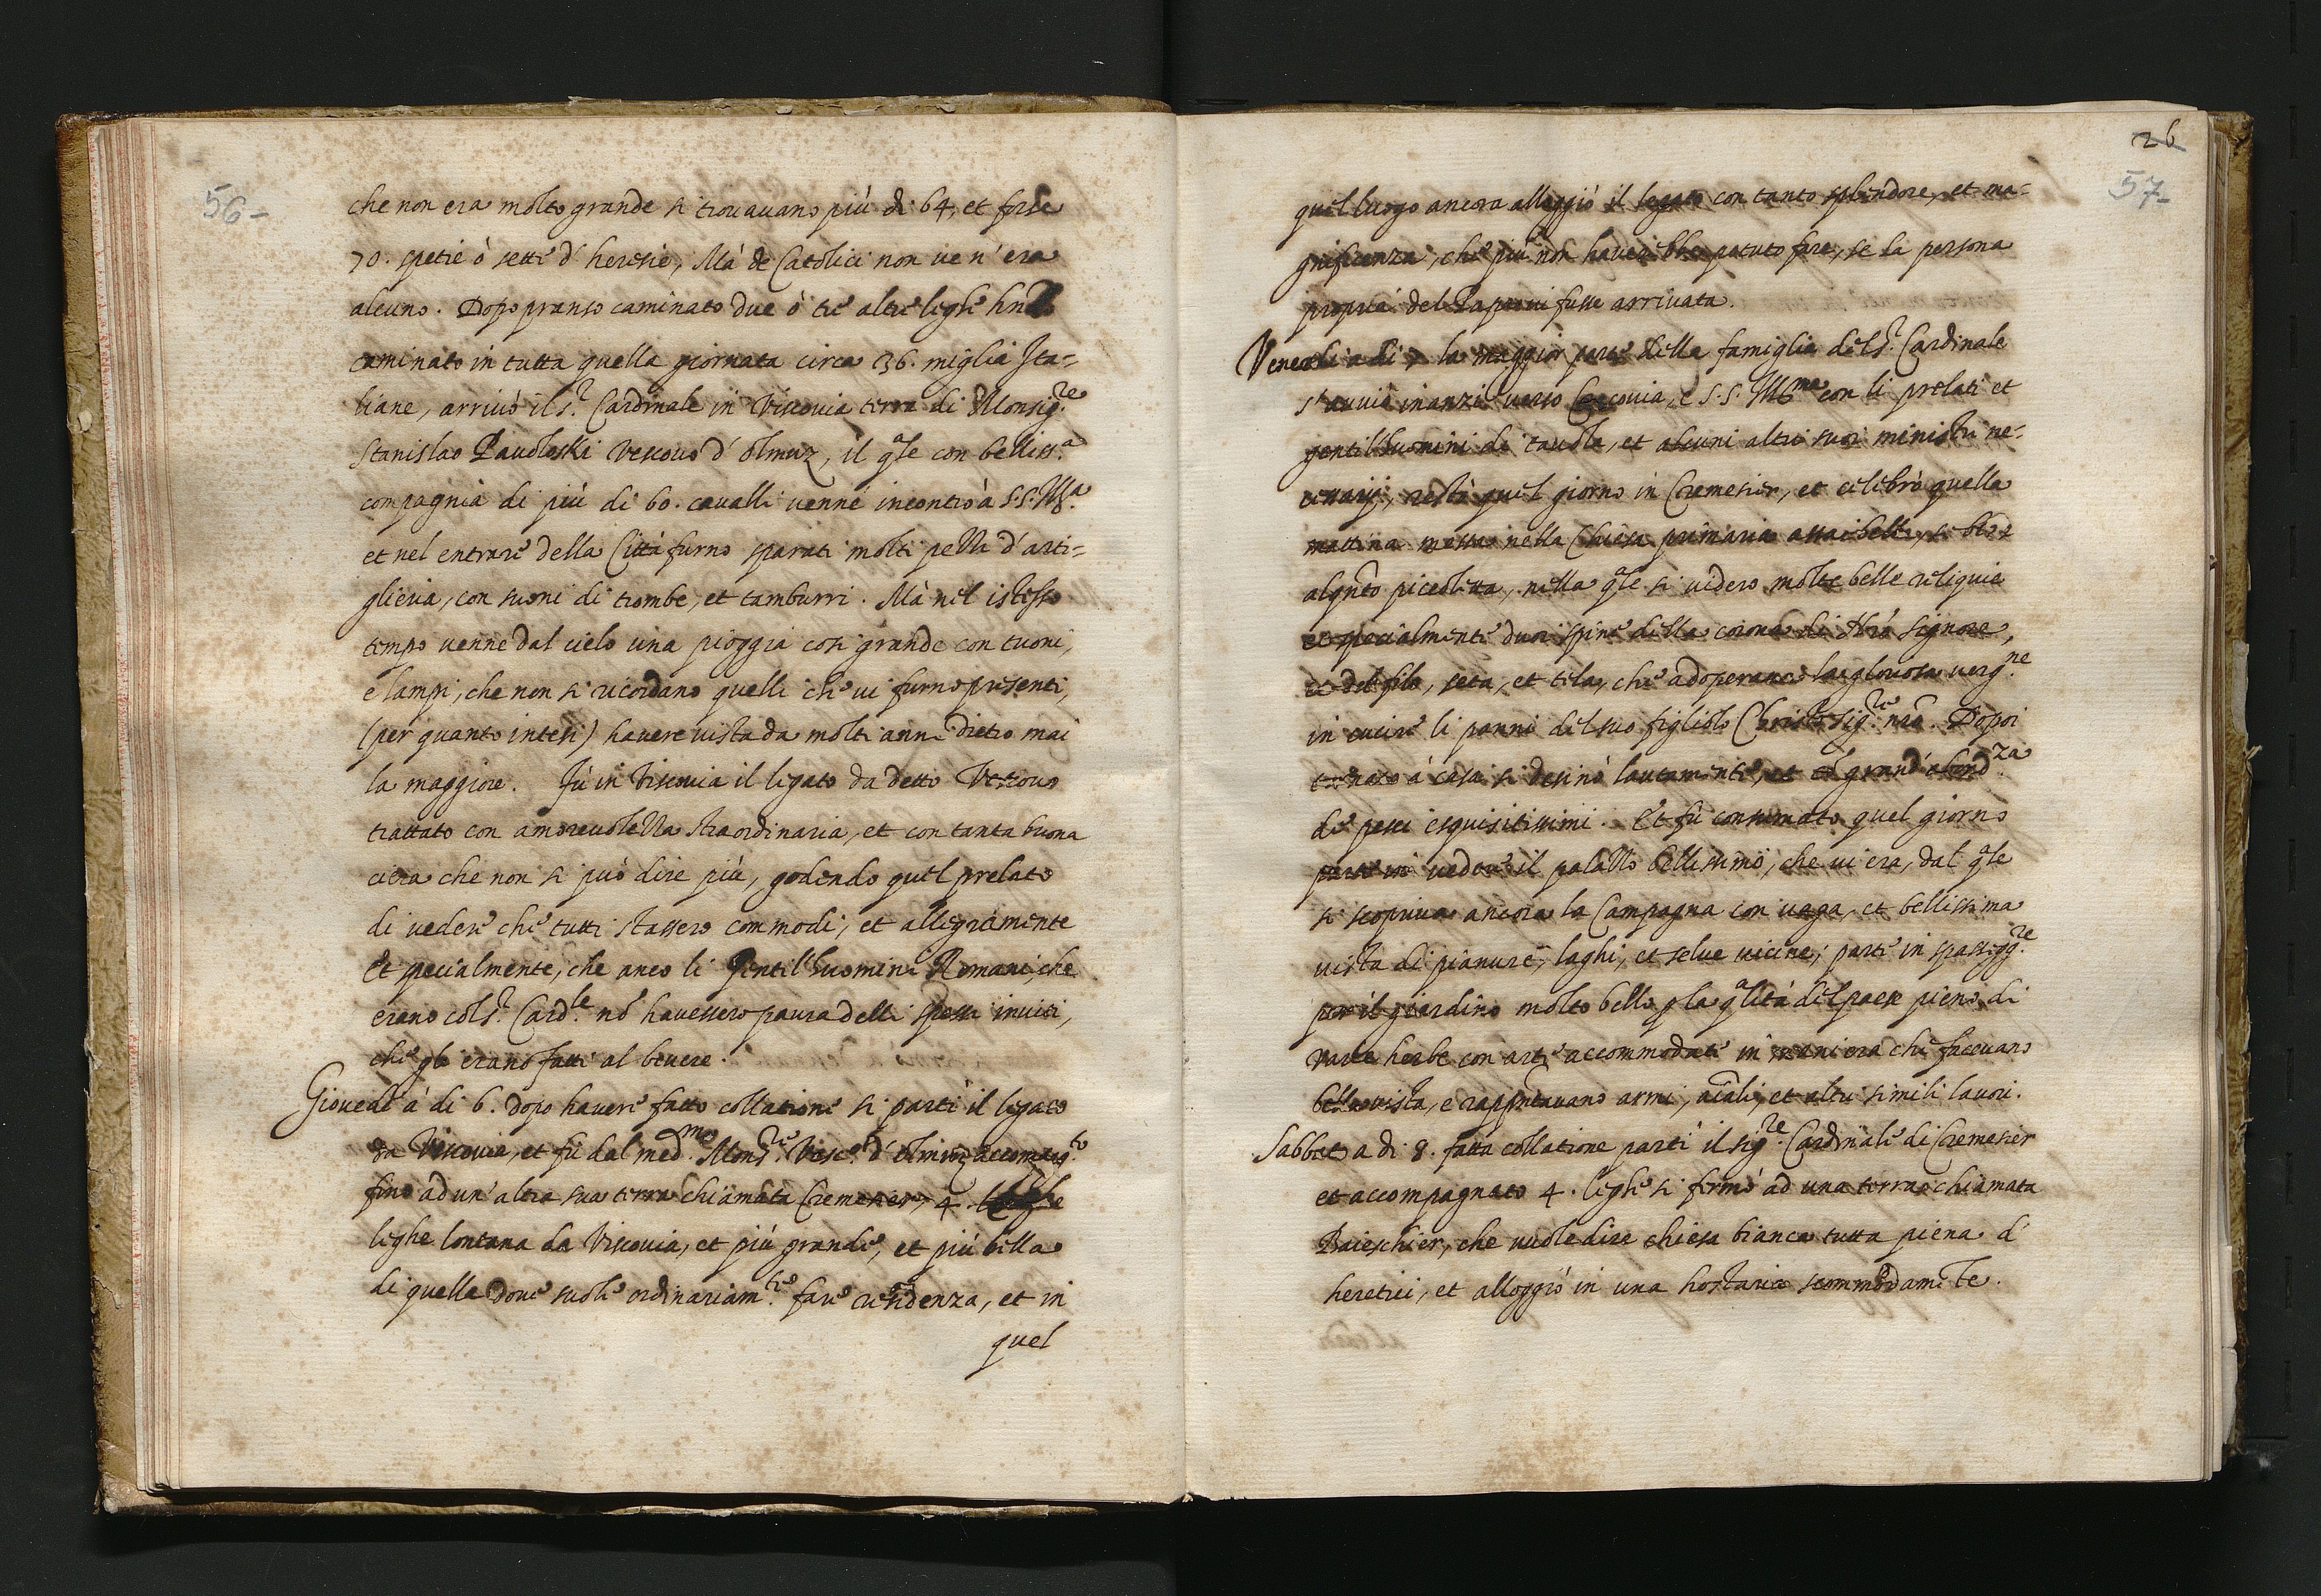 56-
che non era molto grande si trouauano più di 64, et forse
70. spetie ò sette d'heresie, Mà de Catolici non ue n'era
alcuno. Dopo pranso caminato due ò tre altre leghe
caminato in tutta quella giornata circa 36. miglia Ita=
liane, arriuò il s.r Cardinale in Viscouia terra di Monsig.re
Stanislao Pauoloski Vescouo d'Olmuz, il qle con belliss.a
compagnia di più di 60. caualli uenne incontro à S.S. Ill.ma
et nel entrare della Città furno sparati molti pezzi d'arti=
glieria, con suoni di trombe, et tamburri. Mà nel istesso
tempo uenne dal cielo una pioggia cosi grande con tuoni,
e lampi, che non si ricordano quelli che ui furno presenti,
(per quanto intesi) hauere uista da molti anni dietro mai
la maggiore. Fù in Viscouia il legato da detto Vescouo
trattato con amoreuolezza straordinaria, et con tanta buona
ciera che non si può dire più, godendo quel prelato
di uedere che tutti stassero commodi, et allegramente
Et specialmente, che anco li Gentil'huomini Romani, che
erano col s.r Card.le nõ hauessero paura delli spessi inuiti,
che gli erano fatti al beuere.
Giouedi à di 6. dopo hauere fatto collatione si partì il legato
da Viscouia, et fù dal med.mo Mons.re Vesc.o d'Olmuz accompag.to
fino ad un'altra sua terra chiamata Cremesier, 4.
leghe lontana da Viscouia, et più grande, et più bella
di quella doue suole ordinariam.te fare residenza, et in
quel
26
57-
quel luogo ancora alloggiò il legato con tanto splendore, et ma=
gnificenza, che più non hauerebbe potuto fare, se la persona
propria del Papa ui fusse arriuata.
Venerdi a di 7 la maggior parte della famiglia del s.r Cardinale
s'auuiò inanzi uerso Cracouia, e S.S. Ill.ma con li prelati et
gentil'huomini di tauola, et alcuni altri suoi ministri ne=
cessarij, restò quel giorno in Cremesier, et celebrò quella
mattina messa nella Chiesa primaria assai bella, se bene
alqnto piccoletta, nella qle si uidero molte belle reliquie
et specialmente duoi spine della corona di Nrõ Signore,
et del filo, seta, et tela, che adoperaua la gloriosa uerg.ne
in cucire li panni del suo figliolo Christo Sig.re nrõ. Dopoi
tornato à casa si desinò lautamente, et cõ grand'abond.za
de pesci esquisitissimi. Et fù consumato quel giorno
parte in uedere il palazzo bellissimo, che ui era, dal qle
si scopriua ancora la Campagna con uaga, et bellissima
uista di pianure, laghi, et selue uicine; parte in spassegg.re
per il giardino molto bello p la qlità del paese pieno di
uarie herbe con arte accommodate in maniera che faceuano
bella uista, e rappñtauano armi, aiali, et altri simili lauori.
Sabbato a di 8. fatta collatione partì il sig.re Cardinale di Cremesier
et accompagnato 4. leghe si fermò ad una terra chiamata
Baieschier, che uuole dire chiesa bianca tutta piena d'
heretici, et alloggiò in una hostaria scommodamẽte.